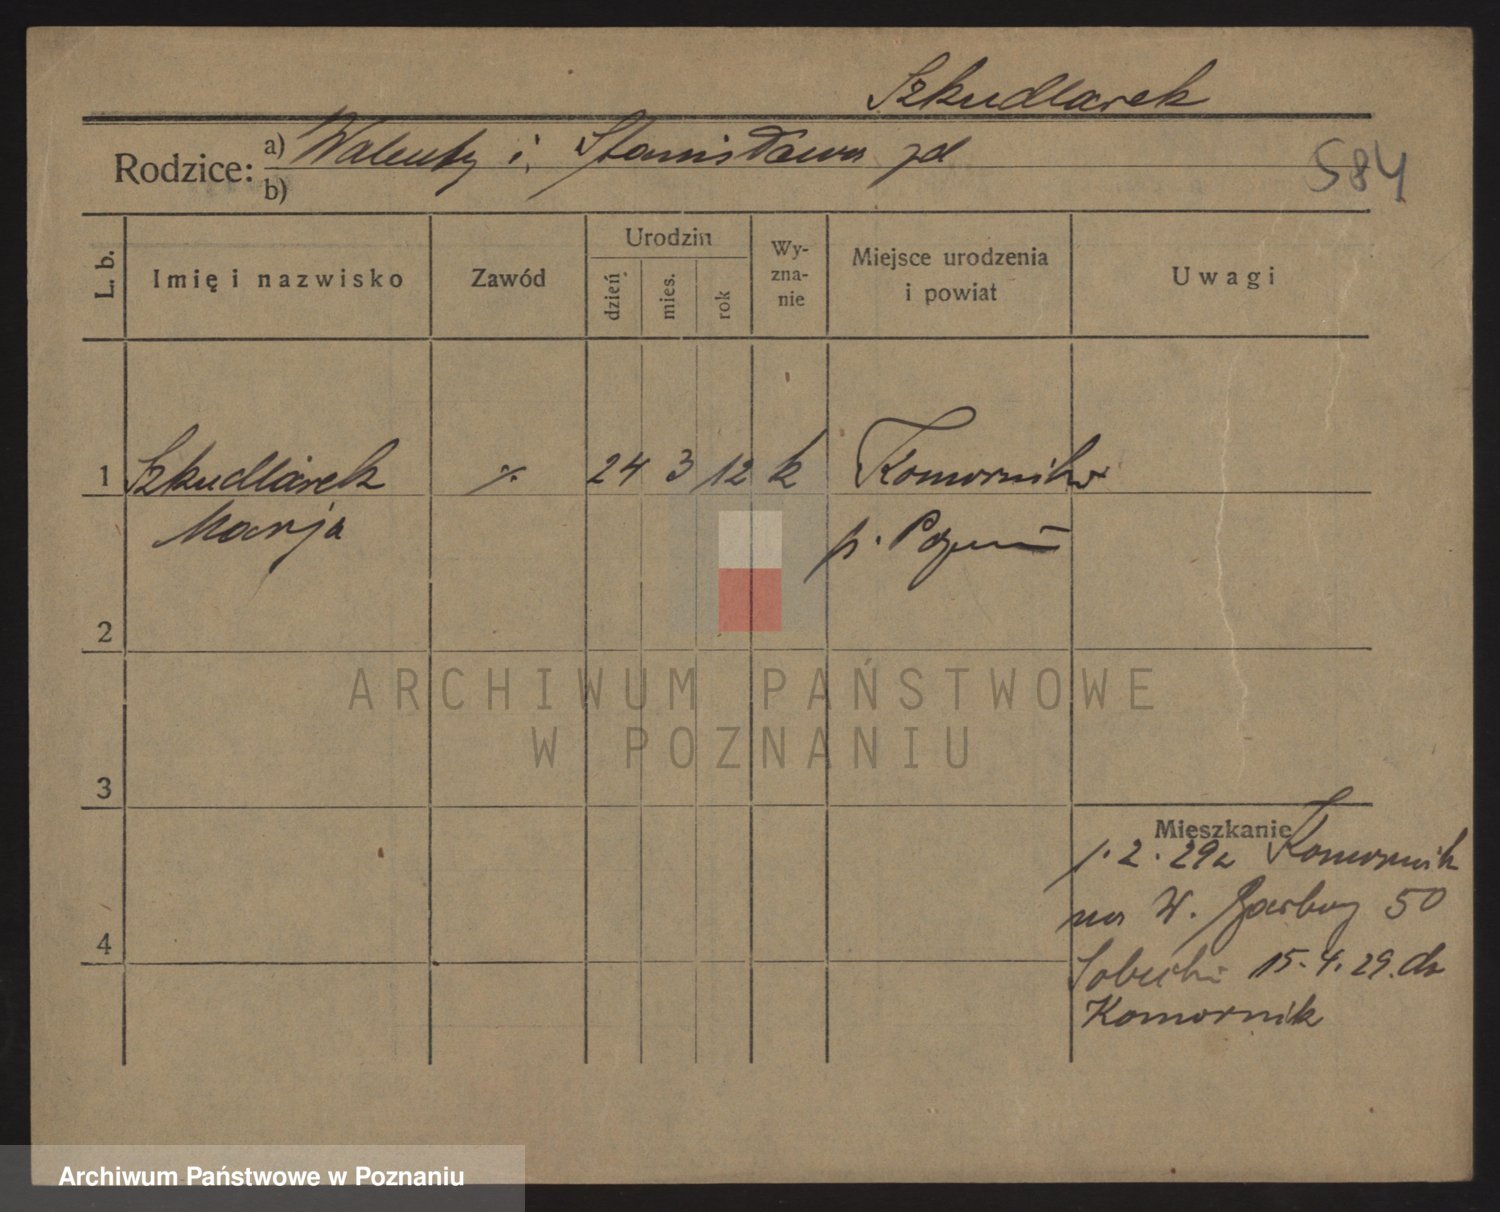 Szkudlarek
Rodzice: a) Walenty i Stanisława zd
b)
584
L. b.
Imię i nazwisko
Zawód
Urodzin
dzień
mies.
rok
Wy-
zna-
nie
Miejsce urodzenia
i powiat
Uwagi
1 Szkudlarek 24 3 12 k Komorniki
Marja p. Poznań
2
ARCHIWUM PAŃSTWOWE
W POZNANIU
3
Mieszkanie
1. 2. 29 z Komornik
na W. Garbary 50
15. 4. 29. do
Komornik
4
Archiwum Państwowe w Poznaniu